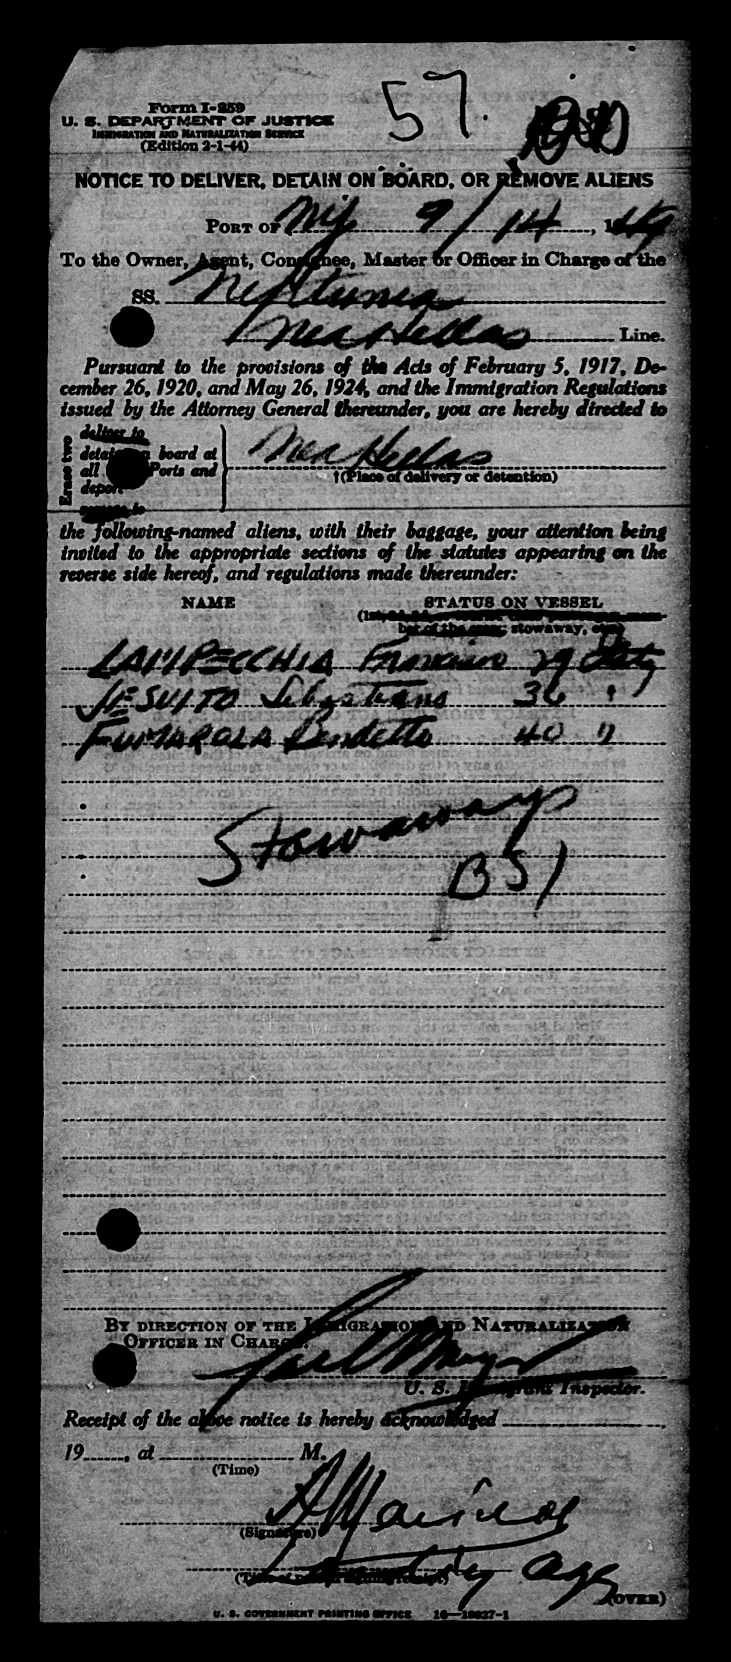 57.
Form I-259
U. S. DEPARTMENT OF JUSTICE
IMMIGRATION AND NATURALIZATION SERVICE
(Edition 2-1-44)
NOTICE TO DELIVER, DETAIN ON BOARD, OR REMOVE ALIENS
PORT OF NY 9/14, 1949
To the Owner, Agent, Consignee, Master or Officer in Charge of the
SS. Neptunia
Nea Hellas Line.
Pursuant to the provisions of the Acts of February 5, 1917, De-
cember 26, 1920, and May 26, 1924, and the Immigration Regulations
issued by the Attorney General thereunder, you are hereby directed to
Erase two
deliver to
detain on board at
all Ports and
deport
remove to
Nea Hellas
†(Place of delivery or detention)
the following-named aliens, with their baggage, your attention being
invited to the appropriate sections of the statutes appearing on the
reverse side hereof, and regulations made thereunder:
NAME STATUS ON VESSEL
stowaway,
LAMPECCHIA Francisco 29 Italy
JESUITO Sebastiano 36 "
FUMAROLA Bendetto 40 "
Stowaways
BSI
BY DIRECTION OF THE IMMIGRATION AND NATURALIZATION
OFFICER IN CHARGE.
U. S. Immigrant Inspector.
Receipt of the above notice is hereby acknowledged
19 , at M.
(Time)
(Signature)
(OVER)
U. S. GOVERNMENT PRINTING OFFICE